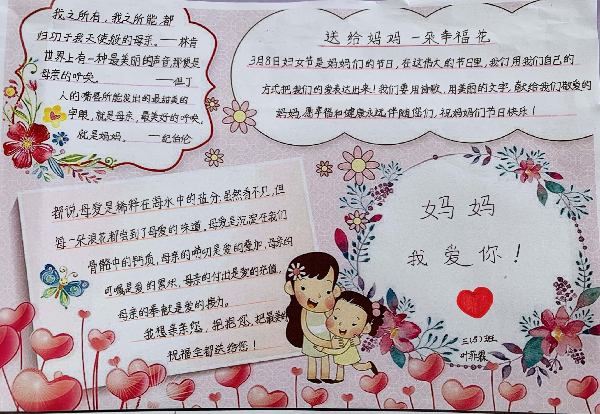 我之所有，我之所能，都
归功于我天使般的母亲。——林肯
世界上有一种最美丽的声音，那便是
母亲的呼唤。——但丁
人的嘴唇所能发出的最甜美的
字眼，就是母亲，最美好的呼唤，
就是妈妈。——纪伯伦
送给妈妈一朵幸福花
3月8日妇女节是妈妈们的节日，在这伟大的节日里，我们用我们自己的
方式把我们的爱表达出来！我们要用诗歌，用美丽的文字，献给我们敬爱的
妈妈，愿幸福和健康永远伴随您们，祝妈妈们节日快乐！
都说，母爱是稀释在海水中的盐分，虽然看不见，但
每一朵浪花都尝到了母爱的味道。母爱是沉淀在我们
骨骼中的钙质，母亲的唠叨是爱的叠加，母亲的
叮嘱是爱的累积，母亲的付出是爱的充值，
母亲的奉献是爱的接力。
我想亲亲您，抱抱您，把最美的
祝福全都送给您！
妈妈
我爱你！
三(5)班
叶